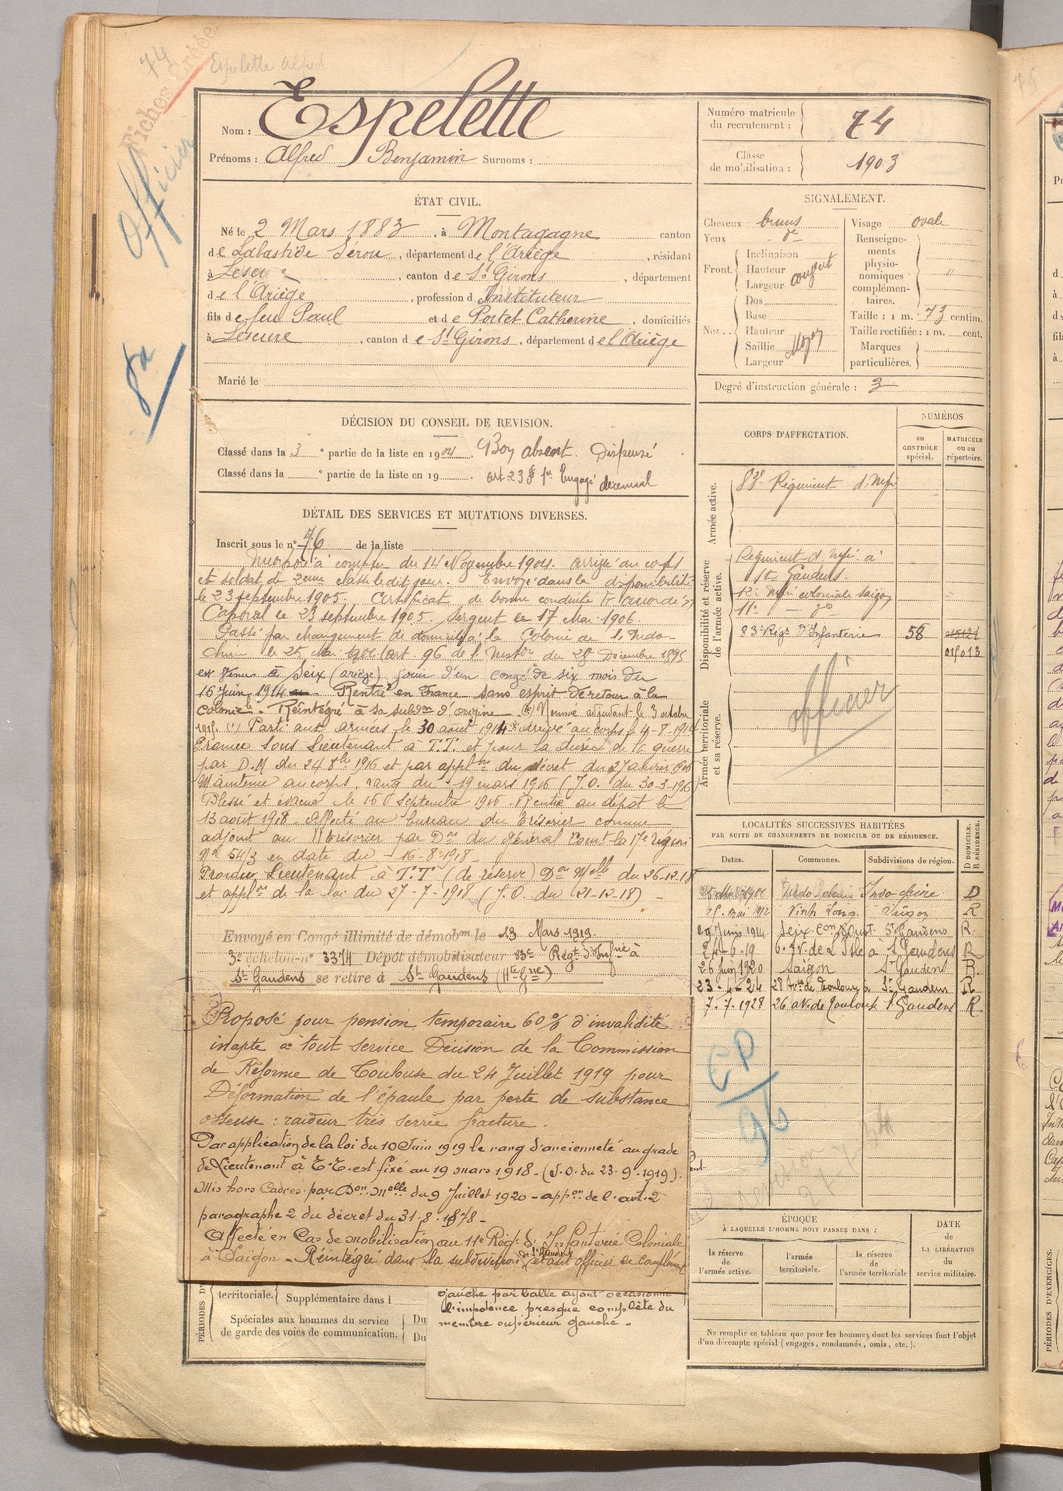 74
Espelette Alfred
Officier
8a
Nom : Espelette
Prénoms : Alfred Benjamin Surnoms :
Numéro matricule du recrutement : 74
Classe de mobilisation : 1903
ÉTAT CIVIL.
Né le 2 Mars 1883, à Montagagne canton
de Labastide Sérou, département de l'Ariège, résidant
à Lescure, canton de St Girons, département
de l'Ariège, profession d'Instituteur
fils de feu Paul et de Portet Catherine, domiciliés
à Lescure, canton de St Girons, département de l'Ariège
Marié le
SIGNALEMENT.
Cheveux bruns
Yeux do
Front. Inclinaison
Hauteur
Largeur
Nez. Dos
Base
Hauteur
Saillie
Largeur Moyen
Visage ovale
Renseignements physionomiques complémentaires. "
Taille : 1 m. 73 centim.
Taille rectifiée : 1 m. cent.
Marques particulières.
Degré d'instruction générale : 3
DÉCISION DU CONSEIL DE REVISION.
Classé dans la 3e partie de la liste en 1904. Bon absent. Dispensé
Classé dans la e partie de la liste en 19 art 23 Engagé décennal
DÉTAIL DES SERVICES ET MUTATIONS DIVERSES.
Inscrit sous le n° 76 de la liste
Incorporé à compter du 14 Novembre 1904. arrivé au corps
et soldat de 2eme classe le dit jour. Envoyé dans la disponibilité
le 23 septembre 1905. Certificat de bonne conduite
Caporal le 23 septembre 1905. Sergent le 17 Mai 1906.
Passé par changement de domicile à la Colonie de l'Indo
chine le 25 Mai (art. 96 de l'Inston du 28 Décembre 1895
est venu à Seix (Ariège) jouir d'un congé de six mois du
16 juin 1914 Rentré en France sans esprit de retour à la
colonie. Réintégré à sa subdon d'origine (2) Nommé adjudant le 3 octobre
1915. (1) Parti aux armées le 30 août 1914 arrivé au corps le 4-8-1914
Promu Sous Lieutenant à T.T. et pour la durée de la guerre
par D.M du 24 1916 et par applon du décret du 2 Janvier
Maintenu au corps, rang du 19 mars 1916 (J.O. du 30-3-1916
Blessé et évacué le 16 septembre 1916. Rentré au dépôt le
13 août 1918. Affecté au bureau du Trésorier comme
adjoint au Trésorier par Don du Général Comt la 17e Région
No 54/3 en date du 16-8-1918.
Promu Lieutenant à T.T. (de réserve) Don Melle du 26-12-18
et applon de la loi du 27-7-1918 (J.O. du 21-12-18)
Envoyé en Congé illimité de démobon le 13 Mars 1919.
3e échelon n° 3374 Dépôt démobilisateur 83e Régt d'Infrie à
St Gaudens se retire à St Gaudens (Hte Gne)
Proposé pour pension temporaire 60% d'invalidité
inapte à tout service Décision de la Commission
de Réforme de Toulouse du 24 Juillet 1919 pour
Déformation de l'épaule par perte de substance
osseuse : raideur très serrée facture.
Par application de la loi du 10 Juin 1919 le rang d'ancienneté au grade
de Lieutenant à T.T. est fixé au 19 mars 1918 - (J.O. du 23.9.1919).
Mis hors Cadres par Don Melle du 9 Juillet 1920 - appon de l'art. 2
paragraphe 2 du décret du 31.8.1878 -
Affecté en Cas de mobilisation au 11e Régt d'Infanterie Coloniale
à Saigon - Réintégré dans la subdivision de St Gaudens étant officier de complément
gauche par balle ayant occasionné
l'impotence presque complète du
membre supérieur gauche -
PÉRIODES D'
territoriale. Supplémentaire dans l
Spéciales aux hommes du service Du
de garde des voies de communication. Du
CORPS D'AFFECTATION.
NUMÉROS
AU CONTRÔLE spécial.
MATRICULE OU AU répertoire.
Armée active.
83e Régiment d'Infie
Disponibilité et réserve de l'armée active.
Régiment d'Infie à
St Gaudens.
Infie coloniale Saigon
11e - do
83e Régt d'Infanterie 58
015013
Armée territoriale et sa réserve.
officier
LOCALITÉS SUCCESSIVES HABITÉES
PAR SUITE DE CHANGEMENTS DE DOMICILE OU DE RÉSIDENCE.
Dates. Communes. Subdivisions de région. D DOMICILE. R RÉSIDENCE.
Indo-chine D
25 mai 1912 Vinh Long. Saïgon R
Seix St Gaudens R.
24-6-19 6 Av. de l'Isle à St Gaudens R
26 juin 1920 Saigon St Gaudens R.
23-4-24 28 Ave de Toulouse St Gaudens R.
7.7.1928 26 av. de Toulouse St Gaudens R
CP
96
ÉPOQUE
À LAQUELLE L'HOMME DOIT PASSER DANS :
la réserve de l'armée active.
l'armée territoriale.
la réserve de l'armée territoriale
DATE de LA LIBÉRATION du service militaire.
Ne remplir ce tableau que pour les hommes dont les services font l'objet
d'un décompte spécial (engagés, condamnés, omis, etc.).
PÉRIODES D'EXERCICES.